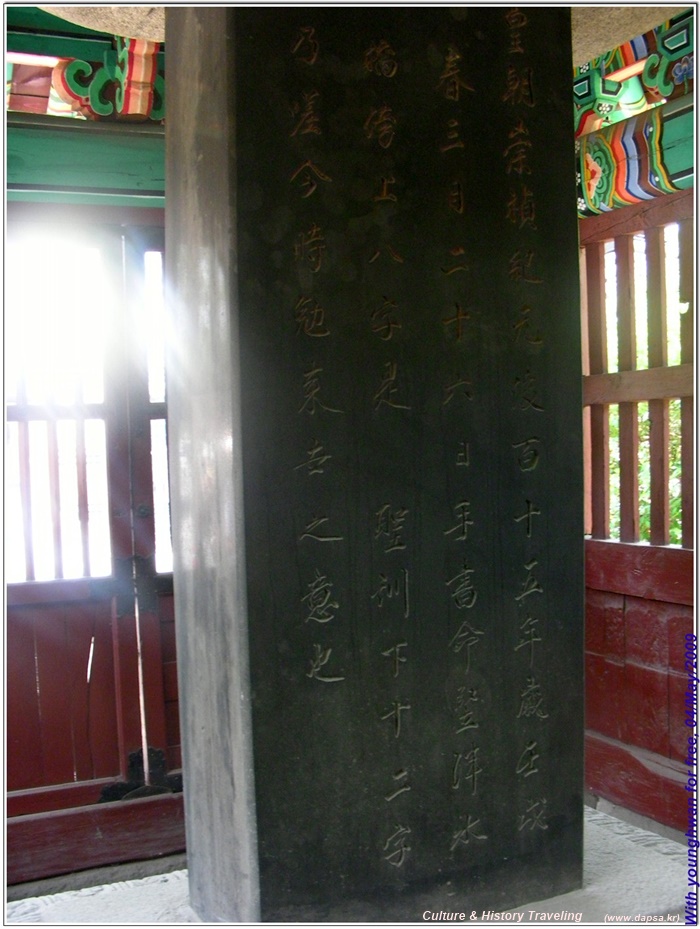 皇朝崇禎紀元後百十五年歲壬戌
春三月二十六日手書命竪泮水
橋傍上八字是 聖訓下十二字
乃嗟今時勉來世之意也
With younghwan for free, 04.May.2009
Culture & History Traveling (www.dapsa.kr)